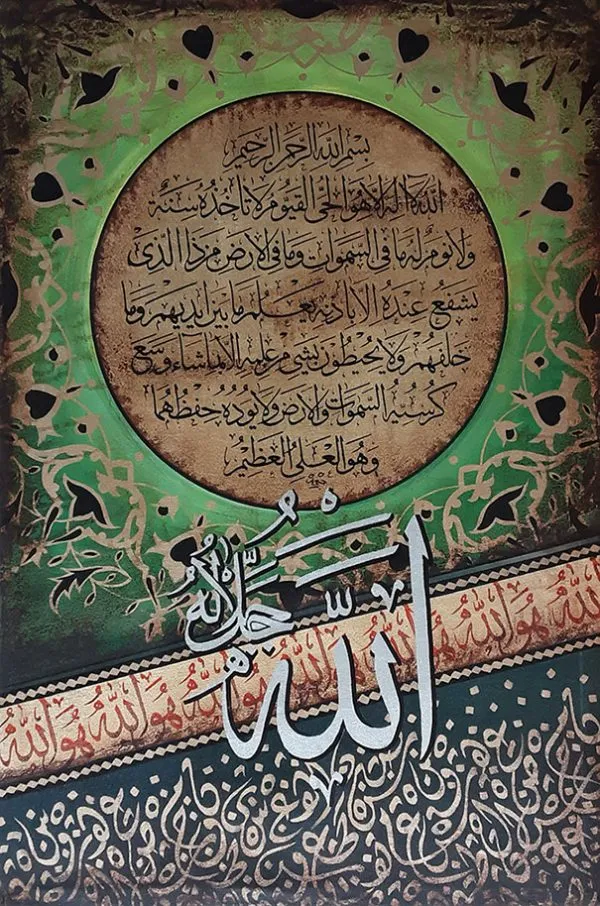 بسم الله الرحمن الرحيم
الله لا اله الا هو الحي القيوم لا تأخذه سنة
ولا نوم له ما في السموات وما في الارض من ذا الذي
يشفع عنده الا باذنه يعلم ما بين ايديهم وما
خلفهم ولا يحيطون بشيء من علمه الا بما شاء وسع
كرسيه السموات والارض ولا يوده حفظهما
وهو العلي العظيم
الله جل جلاله
هو الله هو الله هو الله هو الله هو الله هو الله هو الله